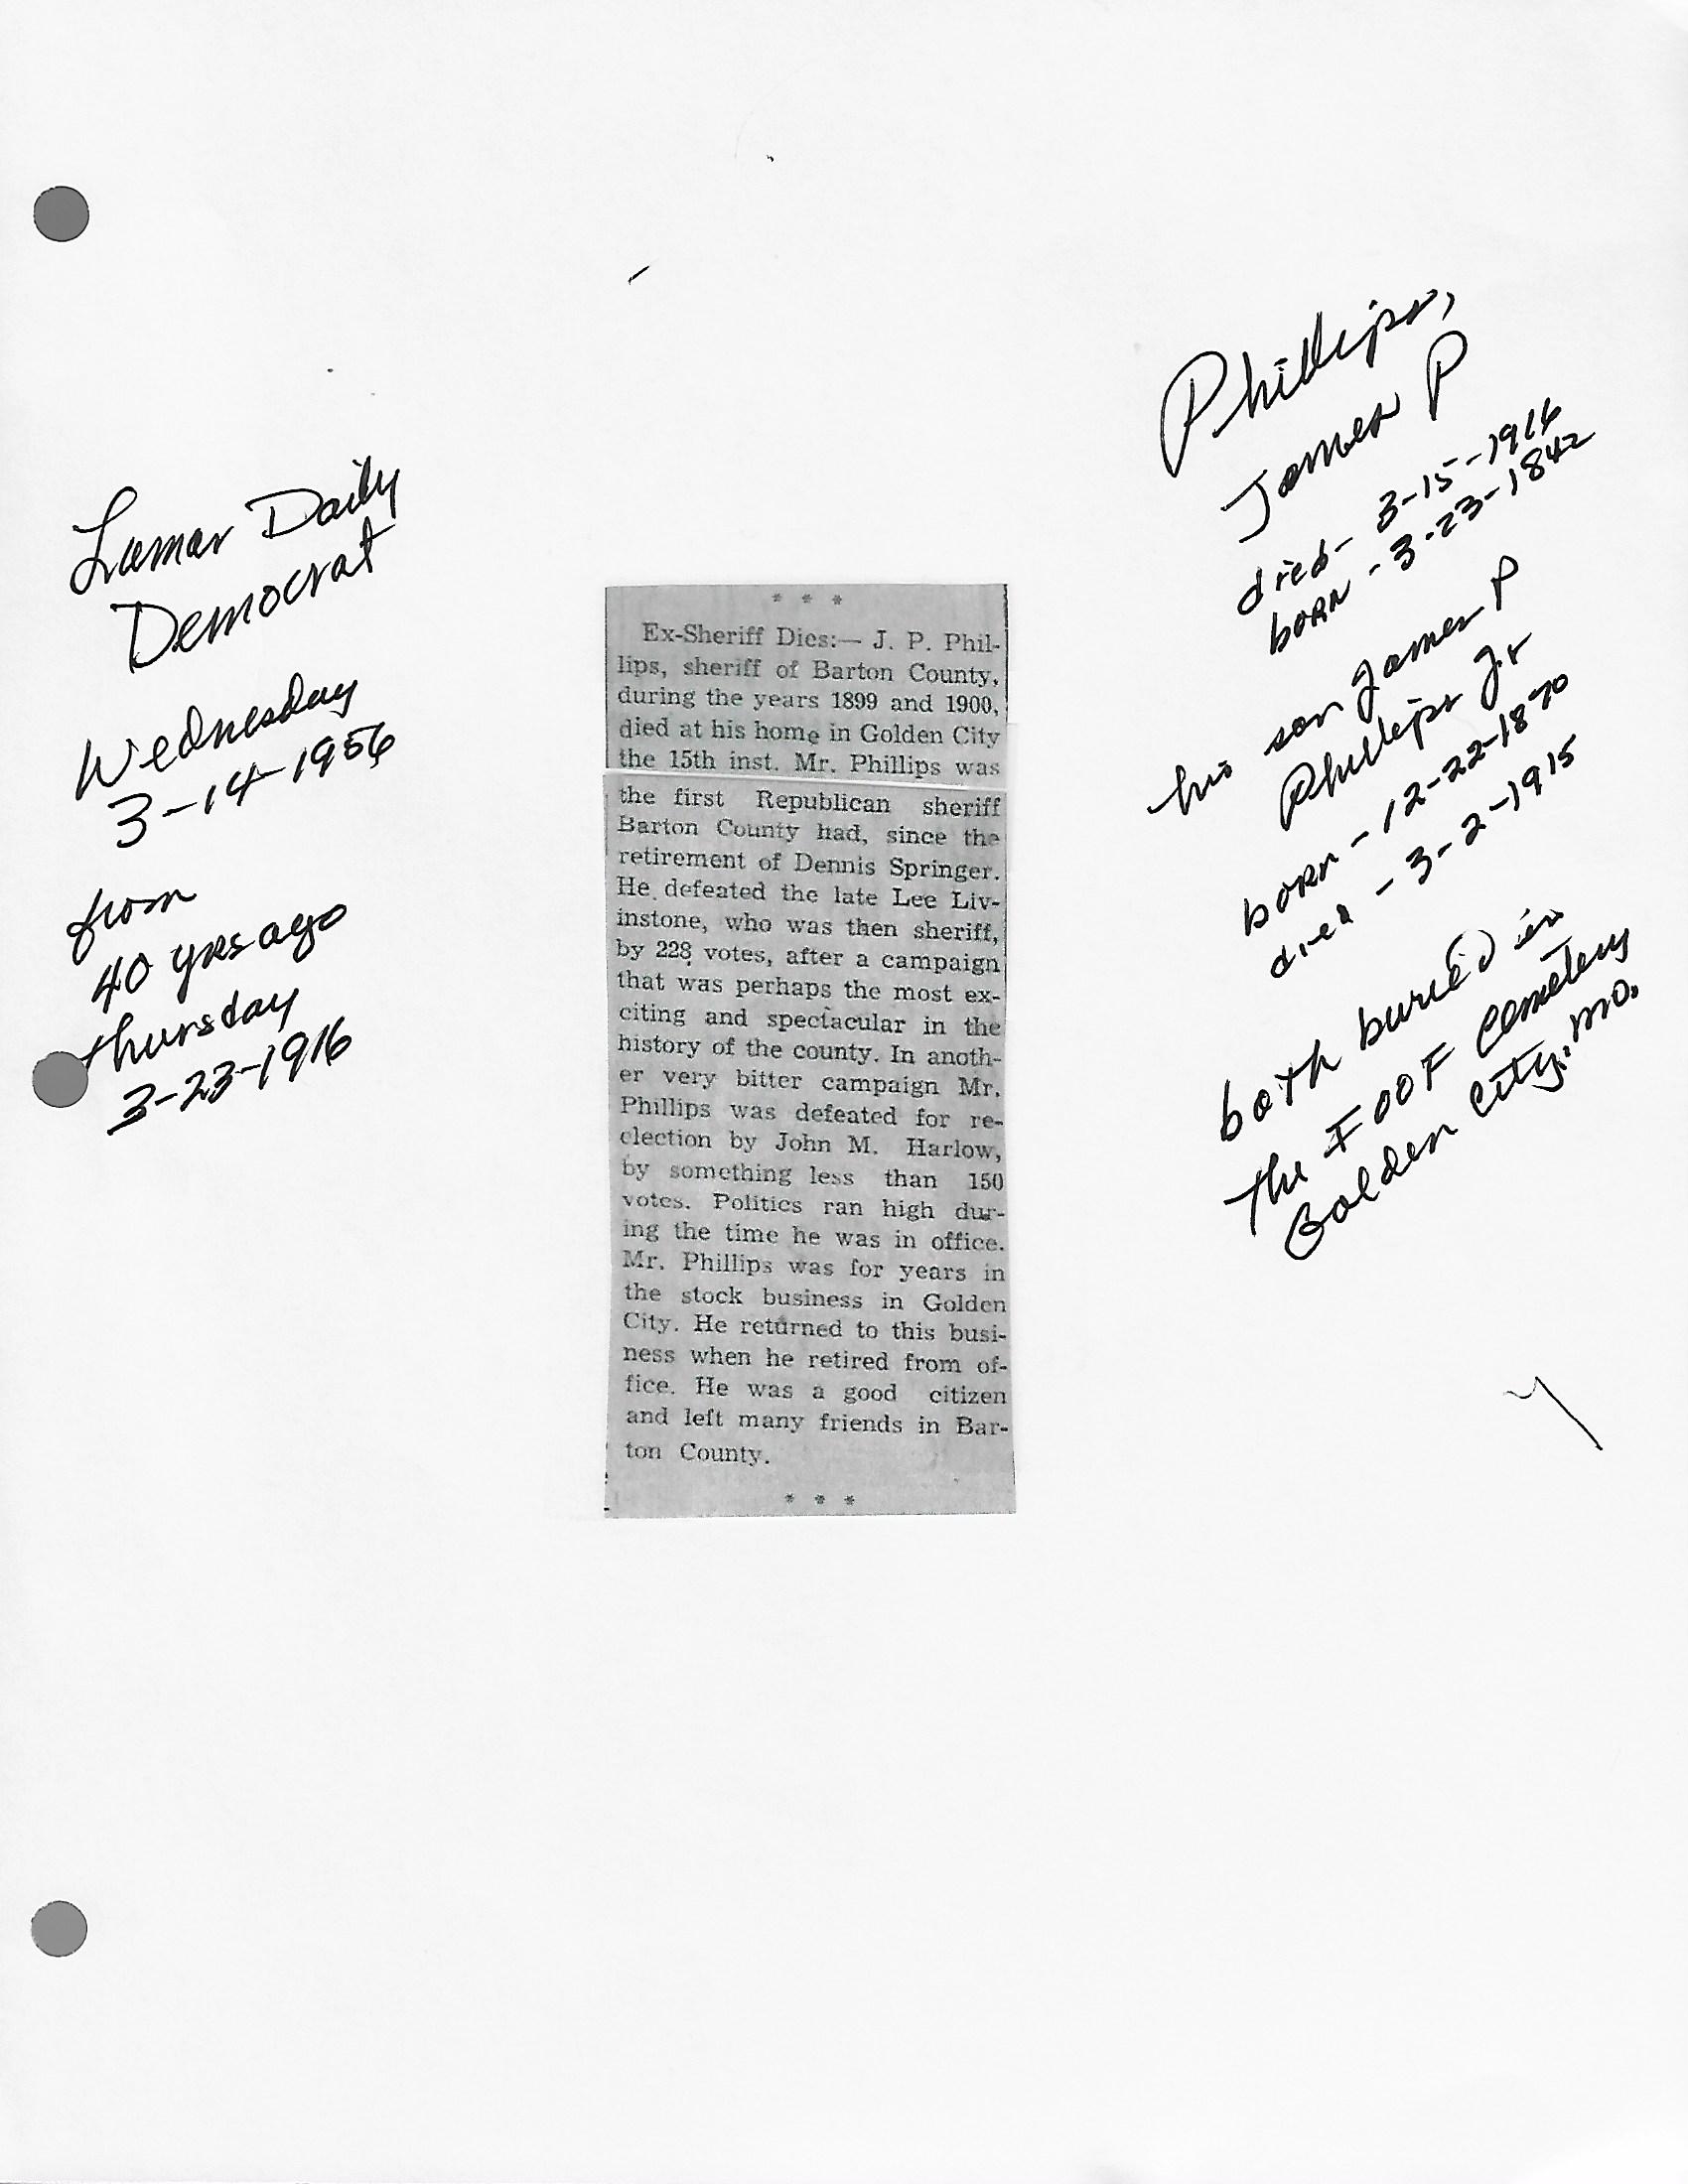 Lamar Daily
Democrat
Wednesday
3-14-1956
from
40 yrs ago
thursday
3-23-1916
* * *
Ex-Sheriff Dies:— J. P. Phil-
lips, sheriff of Barton County,
during the years 1899 and 1900,
died at his home in Golden City
the 15th inst. Mr. Phillips was
the first Republican sheriff
Barton County had, since the
retirement of Dennis Springer.
He defeated the late Lee Liv-
instone, who was then sheriff,
by 228 votes, after a campaign
that was perhaps the most ex-
citing and spectacular in the
history of the county. In anoth-
er very bitter campaign Mr.
Phillips was defeated for re-
election by John M. Harlow,
by something less than 150
votes. Politics ran high dur-
ing the time he was in office.
Mr. Phillips was for years in
the stock business in Golden
City. He returned to this busi-
ness when he retired from of-
fice. He was a good citizen
and left many friends in Bar-
ton County.
* * *
Phillips,
James P
died- 3-15-1916
born - 3-23-1842
his son James P
Phillips Jr
born - 12-22-1870
died - 3-2-1915
both buried in
the IOOF Cemetery
Golden City, Mo.